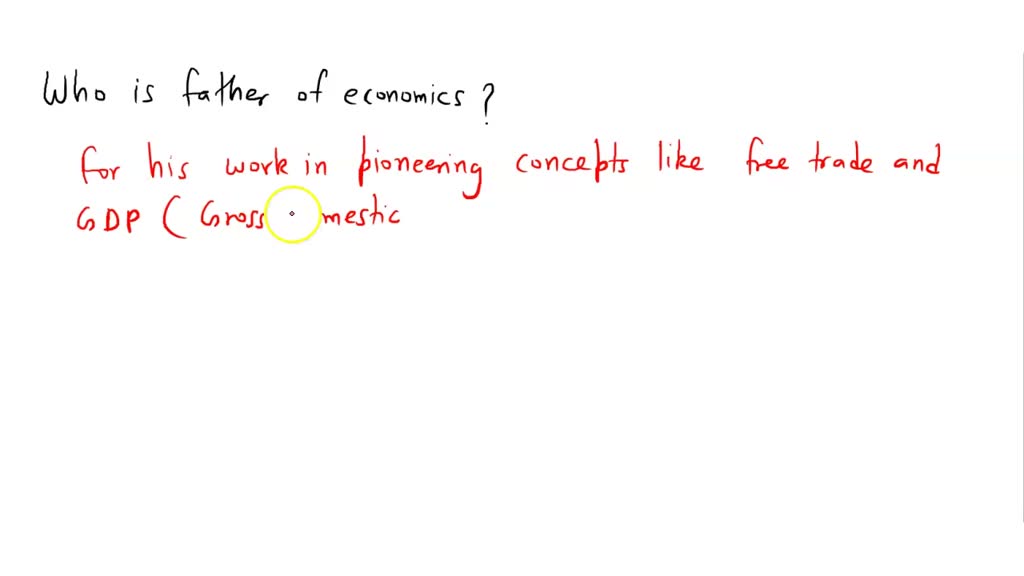 Who is father of economics?
for his work in pioneering concepts like free trade and
GDP ( Gross mestic